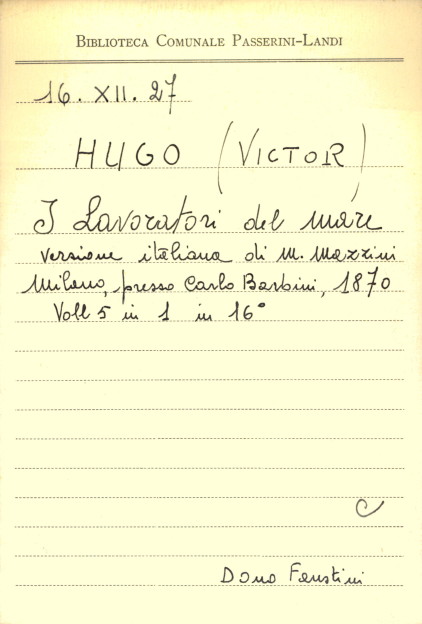 BIBLIOTECA COMUNALE PASSERINI-LANDI
16. XII. 27
HUGO (VICTOR)
I Lavoratori del mare
versione italiana di M. Mazzini
Milano, presso Carlo Barbini, 1870
Voll 5 in 1 in 16°
C
Dono Faustini